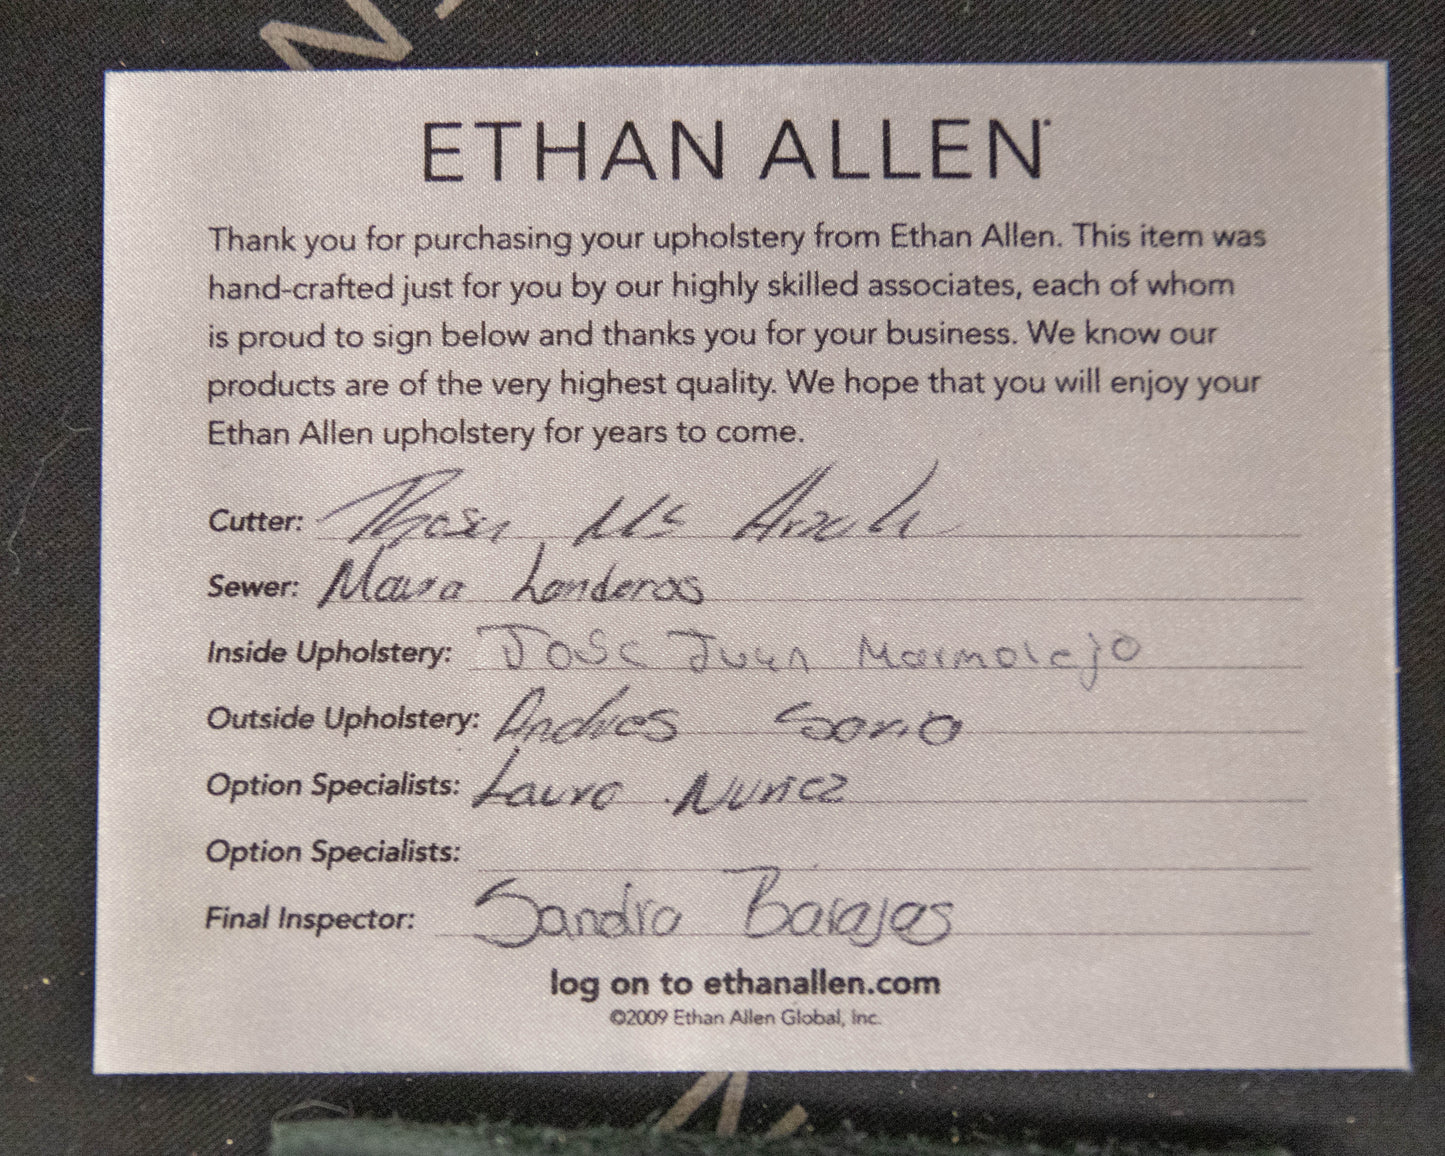 ETHAN ALLEN
Thank you for purchasing your upholstery from Ethan Allen. This item was
hand-crafted just for you by our highly skilled associates, each of whom
is proud to sign below and thanks you for your business. We know our
products are of the very highest quality. We hope that you will enjoy your
Ethan Allen upholstery for years to come.
Cutter:
Sewer: Maura Landeros
Inside Upholstery: Jose Juan Marmolejo
Outside Upholstery: Andres Sorio
Option Specialists: Laura Nunez
Option Specialists:
Final Inspector: Sandra Barajas
log on to ethanallen.com
©2009 Ethan Allen Global, Inc.